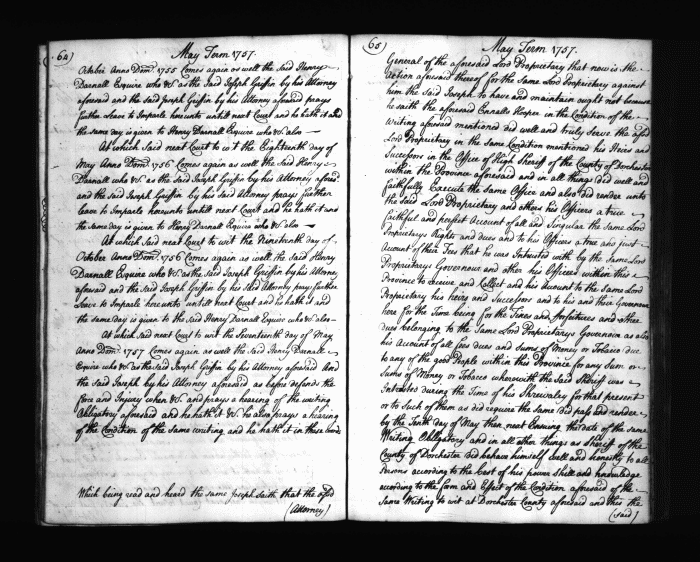 64)
May Term 1757.
October Anno Dom. 1755 Comes again as well the Said Henry
Darnall Esquire who &c. as the Said Joseph Griffin by his Attorney
aforesaid and the said Joseph Griffin by his Attorney aforesaid prays
further Leave to Imparle hereunto untill next Court and he hath it and
the same day is given to Henry Darnall Esquire who &c. also
At which Said next Court to wit the Eighteenth day of
May Anno Dom. 1756 Comes again as well the Said Henry
Darnall Esquire who &c. as the Said Joseph Griffin by his Attorney afores.d
and the Said Joseph Griffin by his said Attorney prays further
leave to Imparle hereunto untill next Court and he hath it and
the same day is given to Henry Darnall Esquire who &c. also
At which Said next Court to wit the Nineteenth day of
October Anno Dom. 1756 Comes again as well the Said Henry
Darnall Esquire who &c. as the Said Joseph Griffin by his Attorney
aforesaid and the Said Joseph Griffin by his Said Attorney prays further
Leave to Imparle hereunto untill next Court and he hath it and
the same day is given to the Said Henry Darnall Esquire who &c. also
At which Said next Court to wit the Seventeenth day of May
Anno Dom. 1757 Comes again as well the Said Henry Darnall
Esquire who &c. as the Said Joseph Griffin by his Attorney aforesaid And
the Said Joseph by his Attorney aforesaid as before defends the
force and Injury when &c. and prays a hearing of the writing
Obligatory aforesaid and he hath it &c. he also prays a hearing
of the Condition of the same writing and he hath it in these words
Which being read and heard the same Joseph Saith that the afsd
(Attorney)
65)
May Term 1757.
General of the aforesaid Lord Proprietary that now is the
Action aforesaid thereof for the Same Lord Proprietary against
him the Said Joseph to have and maintain ought not because
he saith the aforesaid Ennalls Hooper in the Condition of the
Writing aforesaid mentioned did well and truly Serve the afsd
Lord Proprietary in the same Condition mentioned his Heirs and
Successors in the Office of High Sherif of the County of Dorchester
within the Province aforesaid and in all things did well and
faithfully Execute the same Office and also did render unto
the said Lord Proprietary and others his Officers a true
faithful and perfect Account of all and Singular the same Lord
Proprietarys Rights and dues and to his Officers a true and just
Account of their Fees that he was Intrusted with by the Same Lord
Proprietarys Governour and other his Officers within this
Province to receive and Collect and his Account to the Same Lord
Proprietary his heirs and Successors and to his and their Governour
here for the Time being for the Fines and forfeitures and other
dues belonging to the Same Lord Proprietarys Governour as also
his Account of all fees dues and Sums of Money or Tobacco due
to any of the good People within this Province for any Sum or
Sums of Money or Tobacco wherewith the Said Sherif was
Intrusted during the Time of his Shrevalty for that present
or to Such of them as did require the Same did pass and render
by the Tenth day of May then next Ensuing the date of the same
Writing Obligatory and in all other things as Sherif of the
County of Dorchester did behave himself well and honestly to all
Persons according to the best of his power Skill and knowledge
according to the form and Effect of the Condition aforesaid of the
Same Writing to wit at Dorchester County aforesaid and this the
(said)